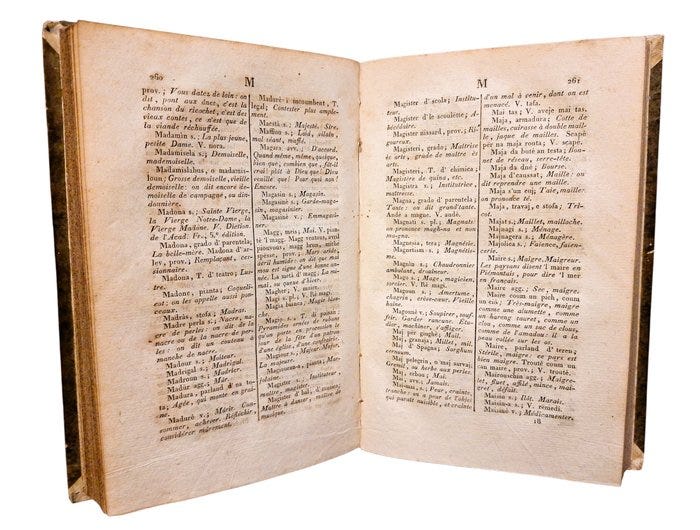 260
M
prov.; Vous datez de loin: on
dit, pont aux ânes, c'est la
chanson du ricochet, c'est des
vieux contes, ce n'est que de
la viande réchauffée.
Madamin s.; La plus jeune,
petite Dame. V. nora.
Madamisela s.; Demoiselle,
mademoiselle.
Madamislahus, o madamis-
loun; Grosse demoiselle, vieille
demoiselle: on dit encore de-
moiselle de campagne, ou din-
donnière.
Madona s.; Sainte Vierge,
la Vierge Notre-Dame, la
Vierge Madône. V. Diction.
de l'Acad. Fr., 5.e édition.
Madona, grado d' parentela;
La belle-mère. Madona d'ar-
lev, prov.; Remplaçant, ces-
sionnaire.
Madona, T. d' teatro; Lus-
tre.
Madone, pianta; Coqueli-
cot: on les appelle aussi pon-
ceaux.
Madràs, stofa; Madras.
Madre perla s.; Nacre, me-
re de perles: on dit de la
nacre ou de la nacre de per-
les: on dit un couteau à
manche de nacre.
Madour s.; Moiteur.
Madrigal s.; Madrigal.
Madroun s.;
Madrier s.; Madrier.
Madùr agg.; Mûr.
Madura, parland d'na to-
ta; Agée, qui monte en grai-
ne.
Madurè v.; Mûrir. Con-
sommer, achever. Réfléchir,
considérer mûrement.
Madurè i incoumbent, T.
legal; Contester plus ample-
ment.
Maestà s.; Majesté. Sire.
Maffion s.; Laid, vilain,
mal élevé, maffé.
Magara avv.; D'accord.
Quand même, même, quoique,
bien que, combien que, fût-il
vrai: plût à Dieu que! Dieu
veuille que! Pour quoi non!
Encore.
Magasin s.; Magasin.
Magasinè s.; Garde-maga-
sin, magasinier.
Magasinè v.; Emmagasi-
ner.
Magg, meis; Mai. On dit
prov.
spiché agosto prov.; Mars
aride, avril humide: on dit que mai
est signe d'une bonne anné-
e. Mettre la magg; La mai-
ou, ou cabane.
Magher; V. maire.
Magi s. pl.; V. Rè magi.
Magìa bianca; Magie blan-
che.
Magio s.; T. di paisan;
Pyramides ornées de rubans
qu'on porte en procession le
jour de la fête d'un patron
d'une église, d'une confrairie.
Magioùr s.; Majeur. Major.
Magiourana, pianta; Mar-
jolaine.
Magister s.; Instituteur,
maître.
Magister d' bal, d' musica;
Maître à danser, maître de
musique.
M
261
Magister d' scola; Institu-
teur.
Magister d' le scoulette; A-
bécédaire.
Magister nissard, prov.; Ri-
goureux.
Magisteri, grado; Maîtrise
ès arts, grade de maître ès
arts.
Magisteri, T. d' chimica;
Magistère de quina, etc.
Magistra s.; Institutrice,
maîtresse.
Magna, grado d' parentela;
Tante: on dit grand'tante.
Andè a magne. V. andè.
Magnat s. pl.; Magnats: on
prononce magh-na et non
ma-gna.
Magnesia, tera; Magnésie.
Magnetism s.; Magnétis-
me.
Magnin s.; Chaudronnier
ambulant, drouineur.
Mago s.; Mage, magicien,
sorcier. V. Rè magi.
Magoun s.; Amertume,
chagrin, crève-cœur. Vieille
haine.
Magounè v.; Soupirer, souf-
frir. Garder rancune. Etu-
dier, machiner, s'affliger.
Mai per gnughè; Mail.
Mai, granaja; Millet, mil.
Mai d' Spagna; Sorghum
cernuum.
Mai o pelegrin, erba; Grai-
ne de Grémil, ou herbe aux perles.
Mai, rebou; Mai.
Mai, avv. Jamais.
Maina, s.; Peur, crainte,
tranche: on a peur de l'objet
qui paraît nuisible, et crainte
d'un mal à venir, dont on est
menacé. V. tafa.
Mai tas; V. aveje mai tas.
Maja, armadura; Cotte de
mailles, cuirasse à double mail-
le, jaque de mailles. Scapè
per na maja routa; V. scapè.
Maja da butè an testa; Bonnet
de réseau, serre-tête.
Maja da dnè; Bourse.
Maja d' caussat; Maille: on
dit reprendre une maille.
Maja s'un euj; Taie, maille:
on prononce té.
Maja, travaj, e stofa; Tri-
cot.
Majat s.; Maillet, mailloche.
Majnagi s.; Ménage.
Majnagera s.; Ménagère.
Majolica s.; Faïence, faïen-
cerie.
Maire s.; Maigre. Maigreur.
Les paysans disent 'l maire en
Piémontais, pour dire 'l fré
en français.
Maire agg.; Sec, maigre.
Maire coum un pich, coum
un ciò; Très-maigre, maigre
comme une alumette, comme
un hareng sauret, comme un
clou, comme un suc de clous,
comme de l'amadou: on dit
il n'a que la peau collée sur
les os.
Maire, parland d' tereu;
Stérile, maigre: ce pays est
bien maigre. Trouvè tut can
maire, prov.; V. trouvè.
Mairouschin agg.; Maigre-
let, fluet, affilé, mince, mai-
gret, défait.
Maisin s.; Ilôt. Marais.
Maisin-a s.; V. remedi.
Maisinè v.; Médicamenter.
18